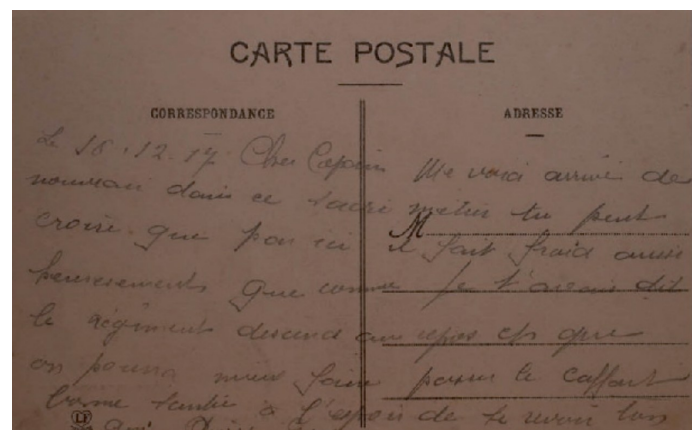 CARTE POSTALE
CORRESPONDANCE
ADRESSE
Le 18.12.17 Cher Copain Me voici arrivé de
nouveau dans ce sacré métier tu peut
croire que par ici il fait froid aussi
M
heureusements que comme je t'avais dit
le régiment descend au repos
on pourra mieux faire passer le caffart
bonne santée à l'espoir de te revoir ton